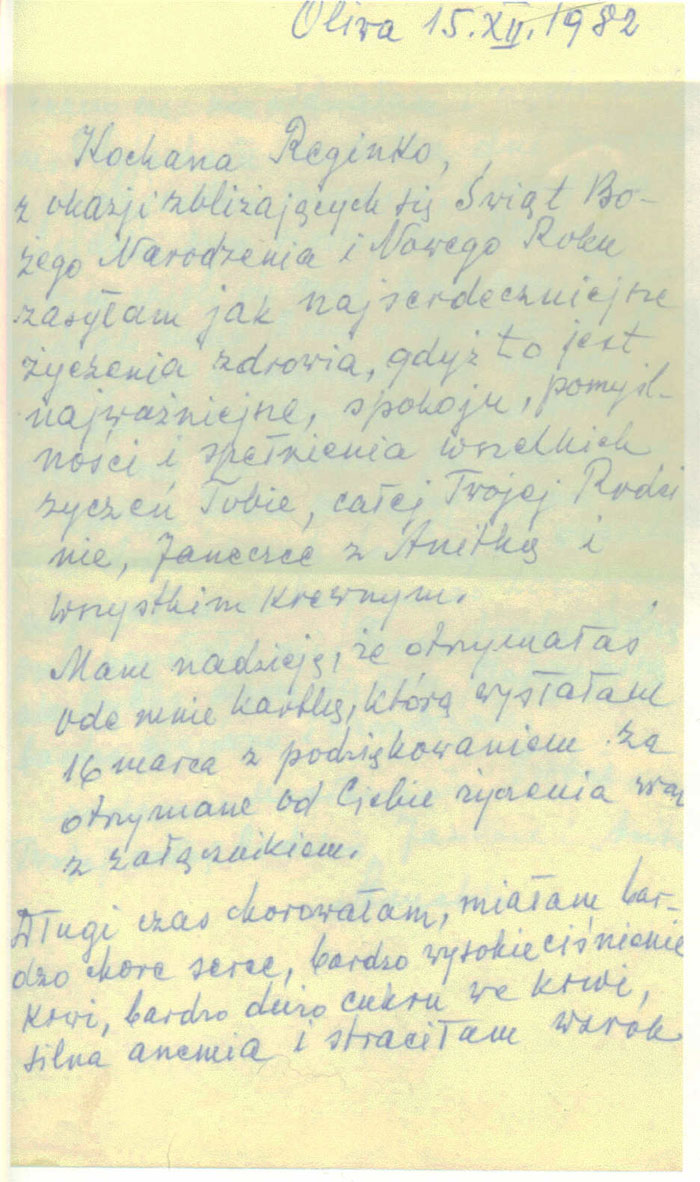 Oliwa 15.XII.1982
Kochana Reginko,
z okazji zbliżających się Świąt Bo-
żego Narodzenia i Nowego Roku
zasyłam jak najserdeczniejsze
życzenia zdrowia, gdyż to jest
najważniejsze, spokoju, pomyśl-
ności i spełnienia wszelkich
życzeń Tobie, całej Twojej Rodzi
nie, Janeczce z Anitką i
wszystkim krewnym.
Mam nadzieję, że otrzymałaś
ode mnie kartkę, którą wysłałam
16 marca z podziękowaniem za
otrzymane od Ciebie życzenia wraz
z załącznikiem.
Długi czas chorowałam, miałam bar-
dzo chore serce, bardzo wysokie ciśnienie
krwi, bardzo dużo cukru we krwi,
silna anemia i straciłam wzrok